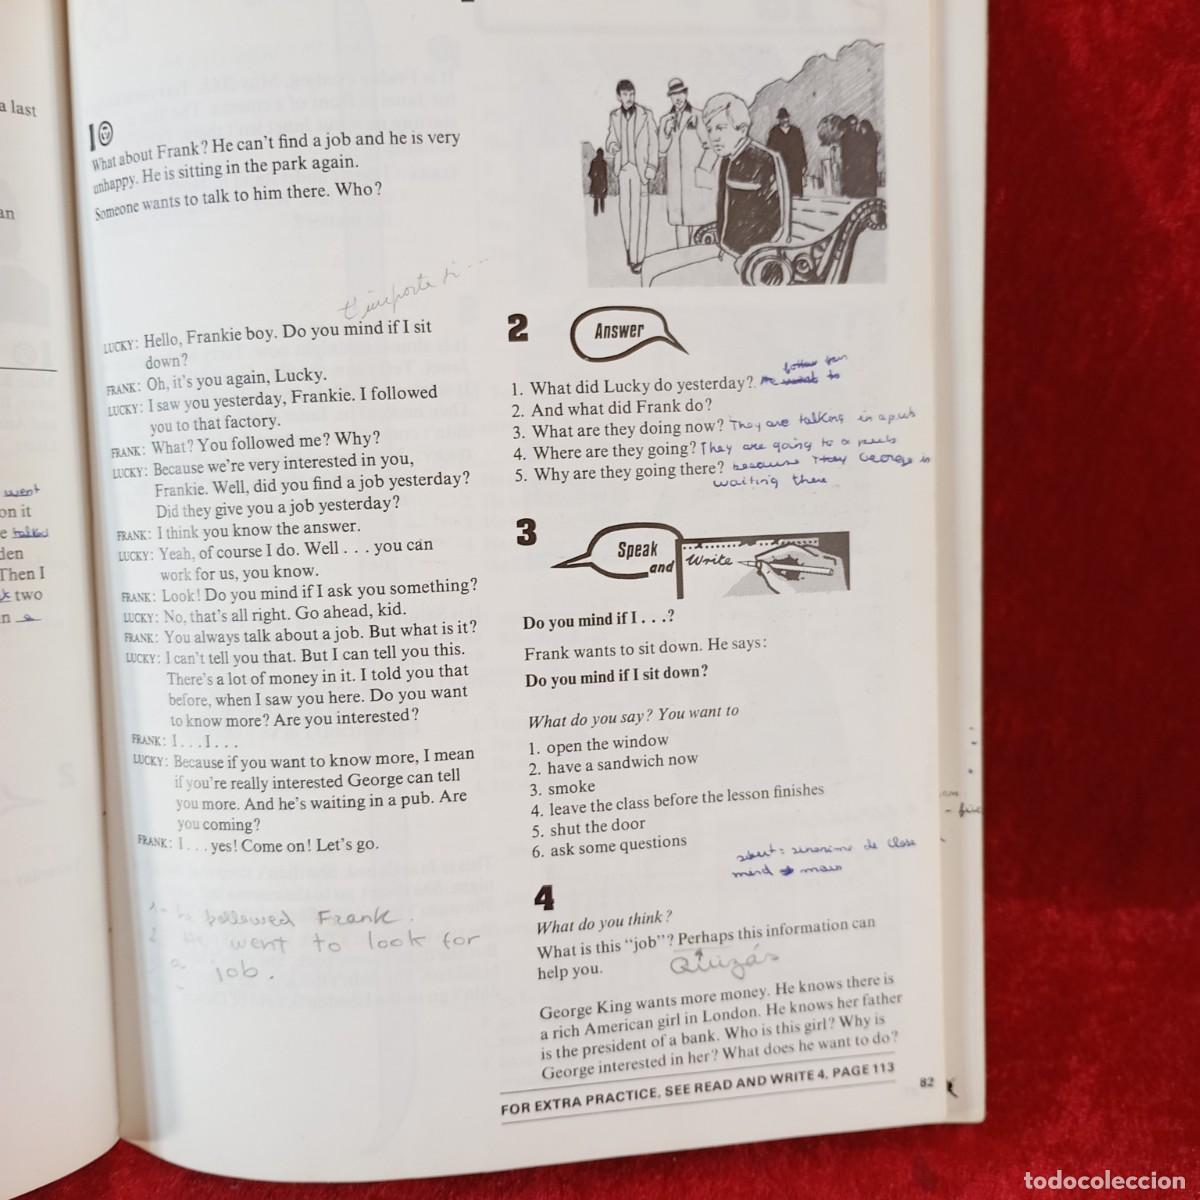 a last
an
went
on it
e talked
den
Then I
two
n a
1
What about Frank? He can't find a job and he is very
unhappy. He is sitting in the park again.
Someone wants to talk to him there. Who?
t'importe si...
LUCKY: Hello, Frankie boy. Do you mind if I sit
down?
FRANK: Oh, it's you again, Lucky.
LUCKY: I saw you yesterday, Frankie. I followed
you to that factory.
FRANK: What? You followed me? Why?
LUCKY: Because we're very interested in you,
Frankie. Well, did you find a job yesterday?
Did they give you a job yesterday?
FRANK: I think you know the answer.
LUCKY: Yeah, of course I do. Well . . . you can
work for us, you know.
FRANK: Look! Do you mind if I ask you something?
LUCKY: No, that's all right. Go ahead, kid.
FRANK: You always talk about a job. But what is it?
LUCKY: I can't tell you that. But I can tell you this.
There's a lot of money in it. I told you that
before, when I saw you here. Do you want
to know more? Are you interested?
FRANK: I . . . I . . .
LUCKY: Because if you want to know more, I mean
if you're really interested George can tell
you more. And he's waiting in a pub. Are
you coming?
FRANK: I . . . yes! Come on! Let's go.
1- he followed Frank.
2 He went to look for
a job.
2
Answer
1. What did Lucky do yesterday?
2. And what did Frank do?
3. What are they doing now? They are talking in a pub
4. Where are they going? They are going to a pub
5. Why are they going there? because they George is
waiting there
3
Speak
and Write
Do you mind if I . . .?
Frank wants to sit down. He says:
Do you mind if I sit down?
What do you say? You want to
1. open the window
2. have a sandwich now
3. smoke
4. leave the class before the lesson finishes
5. shut the door
6. ask some questions
shut: sinonimo de close
4
What do you think?
What is this "job"? Perhaps this information can
help you.
Quizás
George King wants more money. He knows there is
a rich American girl in London. He knows her father
is the president of a bank. Who is this girl? Why is
George interested in her? What does he want to do?
FOR EXTRA PRACTICE, SEE READ AND WRITE 4, PAGE 113
82
todocoleccion